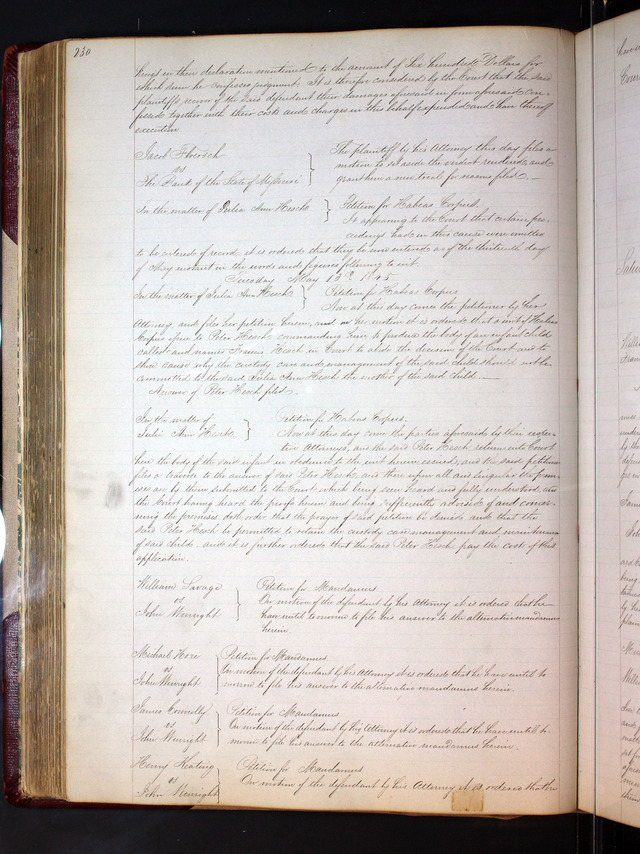 230
tiengs in their declaration mentioned to the amount of Six hundred Dollars for
which sum he confesses judgment: It is therefore considered by the Court that the said
plaintiffs recover of the said defendant their damages aforesaid in form aforesaid con-
fessed together with their costs and charges in this behalf expended and have thereof
execution
Jacob
vs
The Bank of the State of Missouri
The plaintiff by his Attorney this day files a
motion to set aside the verdict rendered, and
grant him a new trial for reasons filed. —
In the matter of Julia Ann Hesch
Petition for Habeas Corpus.
It appearing to the Court that certain pro-
ceedings had in this cause were omitted
to be entered of record, it is ordered that they be now entered as of the thirteenth day
of May instant in the words and figures following to wit
Tuesday May 13th 1845
In the matter of Julia Ann Hesch
Petition for Habeas Corpus
Now at this day comes the petitioner by her
Attorney, and files her petition herein, and on her motion it is ordered that a writ of Habeas
Corpus issue to Peter Hesch commanding him to produce the body of an infant child
called and named Francis Hesch in Court to abide the decision of the Court and to
show cause why the custody care and management of the said child should not be
committed to the said Julia Ann Hesch the mother of the said child. —
Answer of Peter Hesch filed.
In the matter of
Julia Ann Hesch
Petition for Habeas Corpus.
Now at this day come the parties aforesaid by their respec-
tive Attorneys, and the said Peter Hesch returns into Court
here the body of the said infant in obedience to the writ herein issued, and the said petitioner
files a traverse to the answer of said Peter Hesch, and there upon all and singular the prem-
ises are by them submitted to the Court which being seen heard and fully understood, and
the Court having heard the proofs herein and being sufficiently advised of and concer-
ning the premises doth order that the prayer of said petition be denied and that the
said Peter Hesch be permitted to retain the custody care management and maintenance
of said child. and it is further ordered that the said Peter Hesch pay the cost of this
application.
William Savage
vs
John Wenright
Petition for Mandamus
On motion of the defendant by his Attorney it is ordered that he
have until to morrow to file his answer to the alternative mandamus
herein.
Michael Hore
vs
John Wenright
Petition for Mandamus
On motion of the defendant by his Attorney it is ordered that he have until to
morrow to file his answer to the alternative mandamus herein.
James Connolly
vs
John Wenright
Petition for Mandamus
On motion of the defendant by his Attorney it is ordered that he have until to-
morrow to file his answer to the alternative mandamus herein.
Henry Keating
vs
John Wenright
Petition for Mandamus
On motion of the defendant by his Attorney it is ordered that he